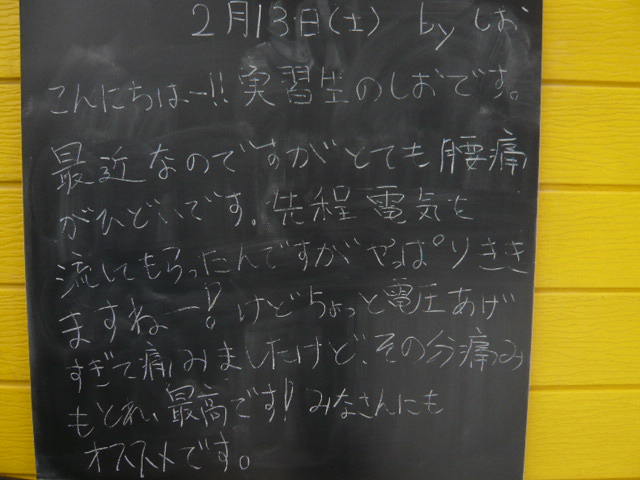 2月13日(土) by しお
こんにちはー!!実習生のしおです。
最近なのですがとても腰痛
がひどいです。先程電気を
流してもらったんですがやっぱりきき
ますねー!けどちょっと電圧あげ
すぎて痛みましたけど、その分痛み
もとれ、最高です!みなさんにも
オススメです。